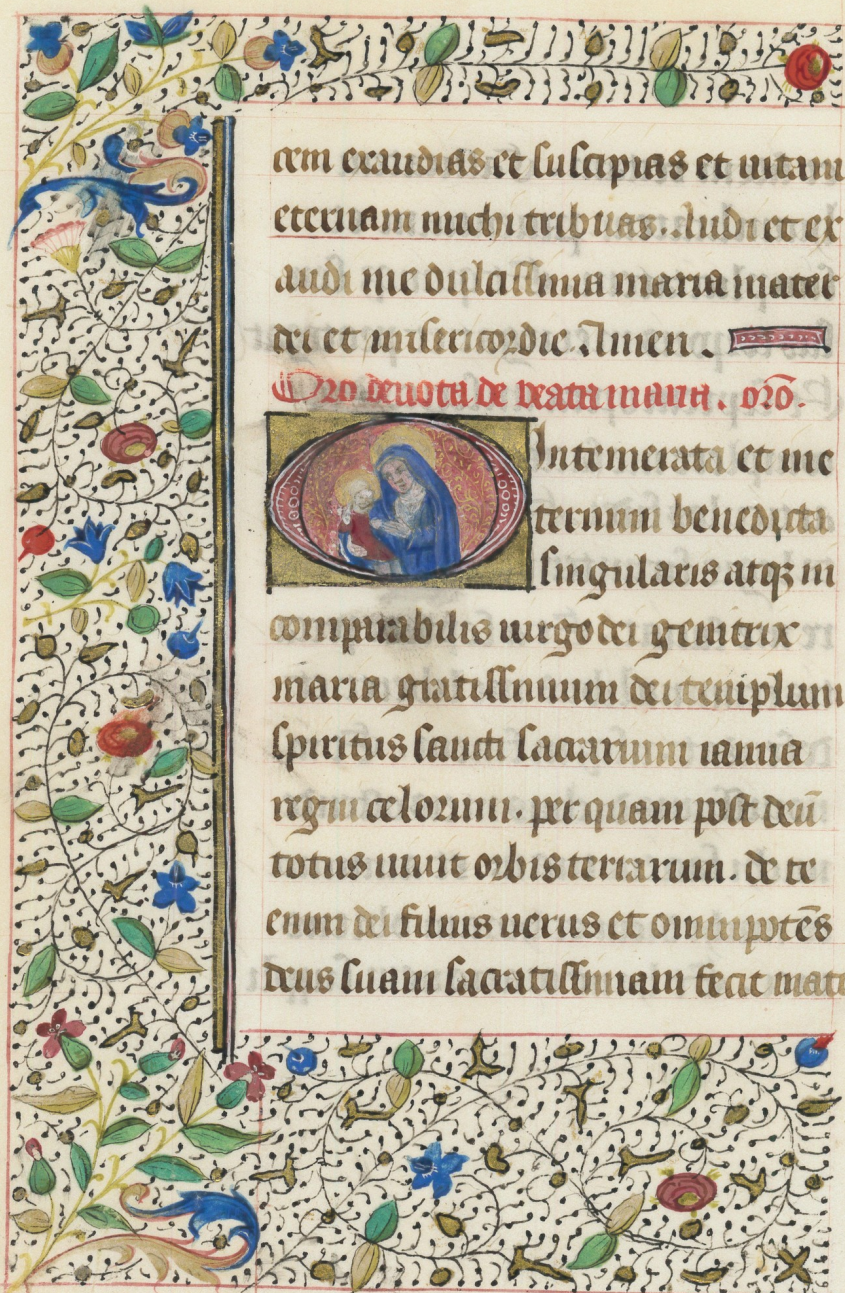 cem exaudias et suscipias et uitam
eternam michi tribuas. Audi et ex
audi me dulcissima maria mater
dei et misericordie. Amen.
Oro deuota de beata maria. orō.
O Intemerata et ine
ternum benedicta
singularis atqꝫ in
comparabilis uirgo dei genitrix
maria gratissimum dei templum
spiritus sancti sacrarium ianua
regni celorum. per quam post deū
totus uiuit orbis terrarum. de te
enim dei filius uerus et omnipotēs
deus suam sacratissimam fecit mat